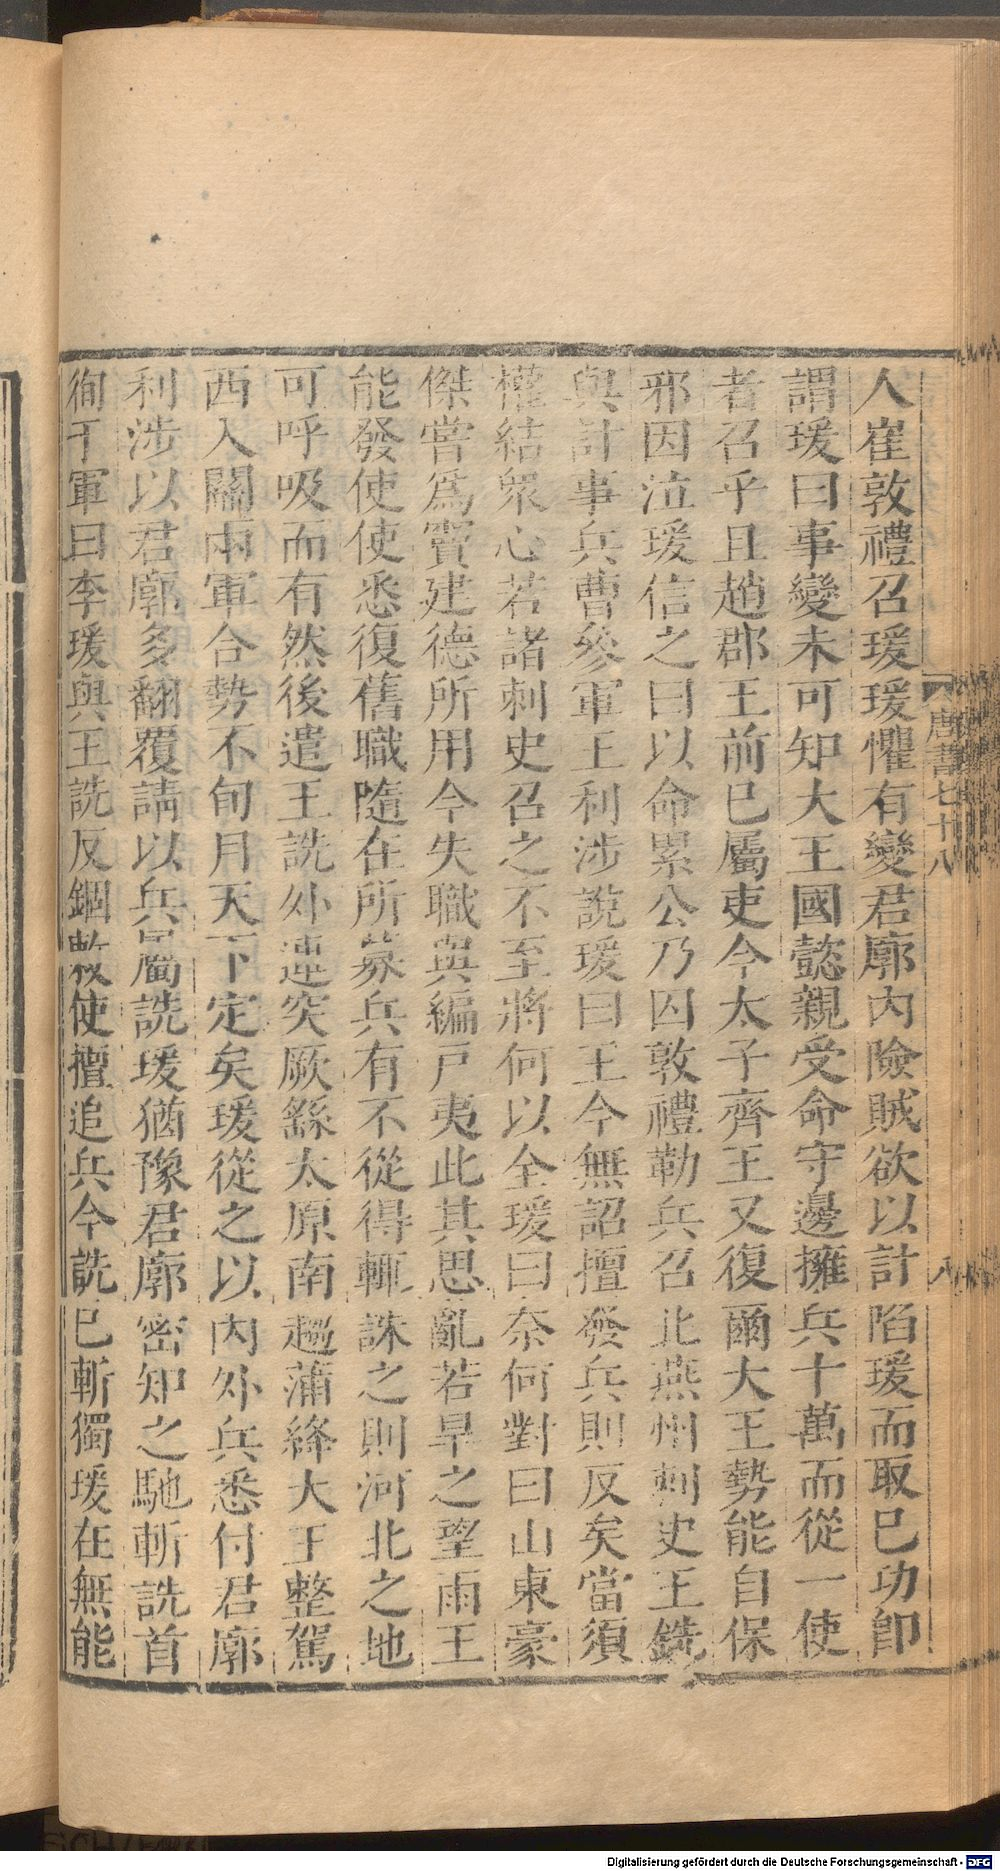 人崔敦禮召瑗瑗懼有變君廓内險賊欲以計陷瑗而取已功卽
謂瑗曰事變未可知大王國懿親受命守邊擁兵十萬而從一使
者召乎且趙郡王前已屬吏今太子齊王又復爾大王勢能自保
邪因泣瑗信之曰以命累公乃囚敦禮勒兵召北燕州刺史王銑
與計事兵曹參軍王利涉說瑗曰王今無詔擅發兵則反矣當須
權結衆心若諸刺史召之不至將何以全瑗曰奈何對曰山東豪
傑嘗爲竇建德所用今失職與編戸夷此其思亂若旱之望雨王
能發使使悉復舊職隨在所募兵有不從得輒誅之則河北之地
可呼吸而有然後遣王詵外連突厥繇太原南趨蒲絳大王整駕
西入關兩軍合勢不旬月天下定矣瑗從之以内外兵悉付君廓
利涉以君廓多翻覆請以兵屬詵瑗猶豫君廓密知之馳斬詵首
徇于軍曰李瑗與王詵反錮敕使擅追兵今詵已斬獨瑗在無能
唐書七十八
八
Digitalisierung gefördert durch die Deutsche Forschungsgemeinschaft - DFG